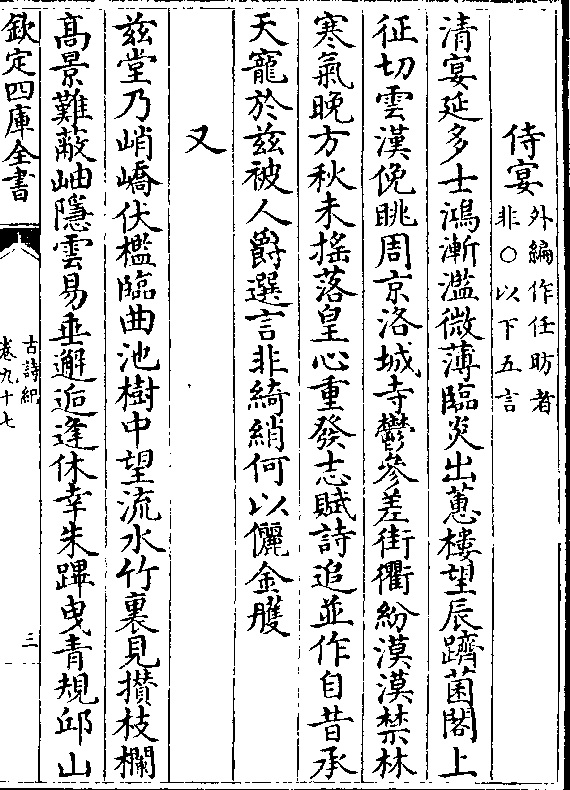 侍宴外編作任昉者
非○以下五言
清宴延多士鴻漸濫微薄臨炎出蕙樓望辰躋菌閣上
征切雲漢俛眺周京洛城寺鬱參差街衢紛漠漠禁林
寒氣晚方秋未揺落皇心重發志賦詩追並作自昔承
天寵於兹被人爵選言非綺綃何以儷金雘
又
兹堂乃峭嶠伏檻臨曲池樹中望流水竹裏見攅枝欄
髙景難蔽岫隱雲易垂邂逅逢休幸朱蹕曳青規邱山
欽定四庫全書
古詩紀
卷九十七
三